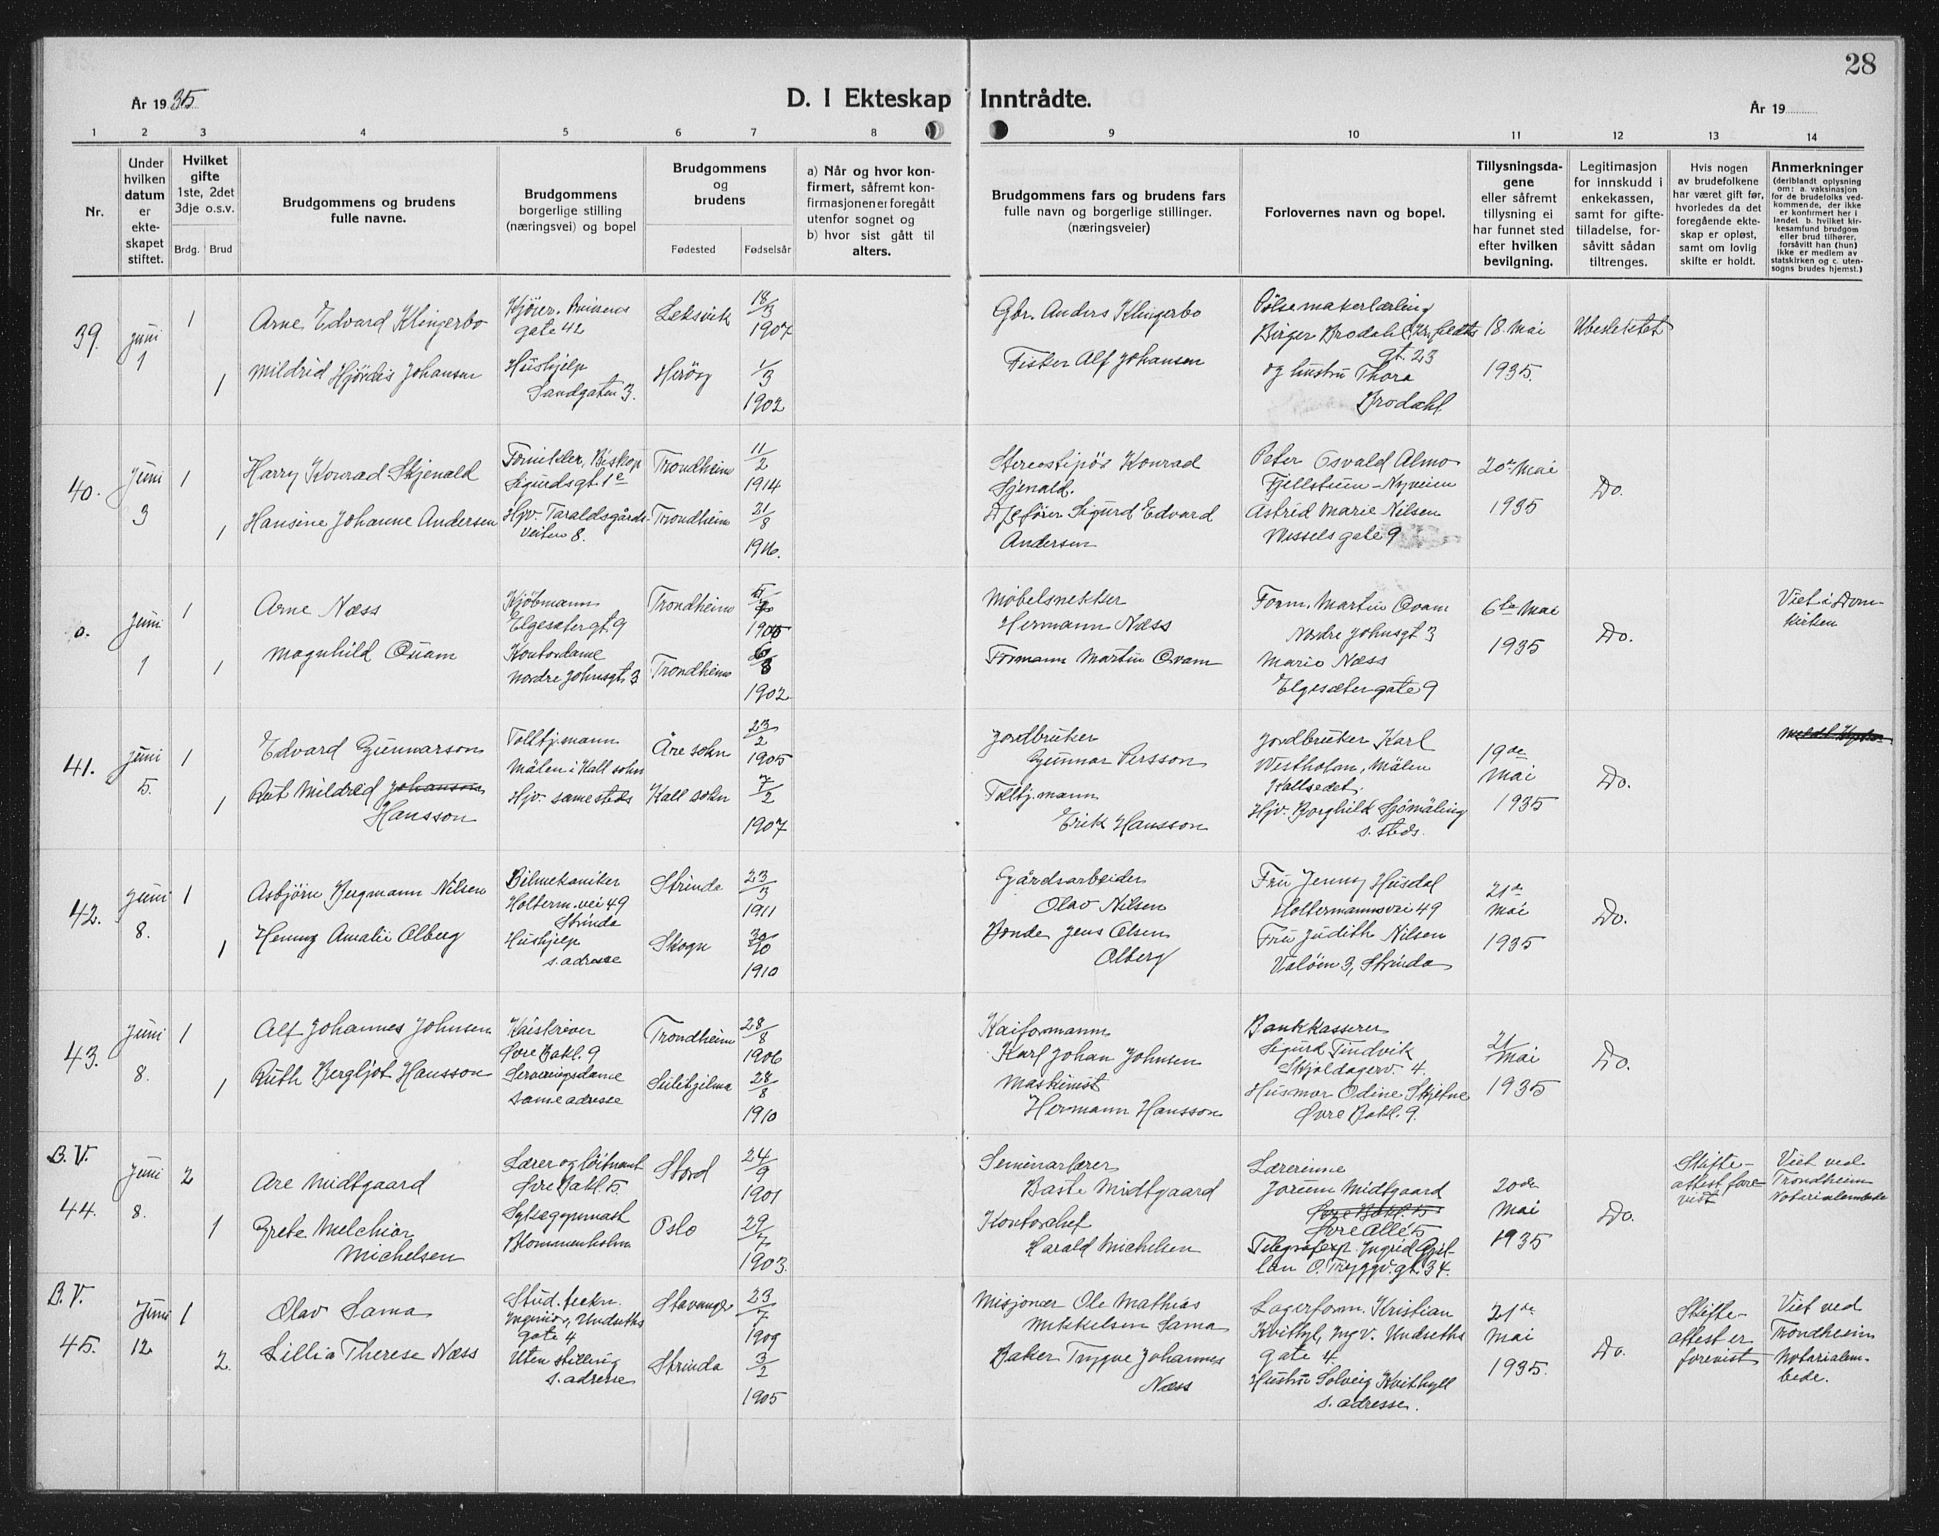 28
År 1935
D. I Ekteskap Inntrådte.
År 19
1 2 3 4 5 6 7 8 9 10 11 12 13 14
Nr.
Under hvilken datum er ekteskapet stiftet.
Hvilket gifte 1ste, 2det 3dje o.s.v.
Brdg. Brud
Brudgommens og brudens fulle navne.
Brudgommens borgerlige stilling (næringsvei) og bopel
Brudgommens og brudens
Fødested Fødselsår
a) Når og hvor konfirmert, såfremt konfirmasjonen er foregått utenfor sognet og
b) hvor sist gått til alters.
Brudgommens fars og brudens fars fulle navn og borgerlige stillinger. (næringsveier)
Forlovernes navn og bopel.
Tillysningsdagene eller såfremt tillysning ei har funnet sted efter hvilken bevilgning.
Legitimasjon for innskudd i enkekassen, samt for giftetilladelse, forsåvitt sådan tiltrenges.
Hvis nogen av brudefolkene har været gift før, hvorledes da det foregående ekteskap er opløst, samt om lovlig skifte er holdt.
Anmerkninger
(deriblandt oplysning om: a. vaksinasjon for de brudefolks vedkommende, der ikke er konfirmert her i landet. b. hvilket kirkesamfund brudgom eller brud tilhører, forsåvitt han (hun) ikke er medlem av statskirken og c. utensogns brudes hjemst.)
39.
Juni
1
1
Arne Edvard Klingerbo
gate 42
Leksvik
18/3
1907
Gbr. Anders Klingerbo
Pølsemakerlærling
Birger Brodahl
gt. 23
18. Mai
1935.
Ubesletet
1
Mildrid Hjørdis Johansen
Hushjelp
Sandgaten 3.
Herøy
1/3
1902
Fisker Alf Johansen
og hustru Thora
Brodahl
40.
Juni
3
1
Harry Konrad Skjenald
Fornikler, Biskop
Sigurdsgt. 1e
Trondheim
11/2
1914
Konrad
Sjenald.
Peter Osvald Almo
Nyveien
20de Mai
1935
Do.
1
Hansine Johanne Andersen
Hjv. Taraldsgårds-
veiten 8.
Trondheim
21/8
1916.
Sigurd Edvard
Andersen
Astrid Marie Nilsen
Wessels gate 9
o.
Juni
1
1
Arne Næss
Kjøbmann
Elgesetergt. 9
Trondheim
1905
Møbelsnekker
Hermann Næss
Form. Martin Qvam
Nordre Johnsgt 3
6te Mai
1935
Do.
Viet i Dom-
kirken
1
Magnhild Qvam
Kontordame
Nordre Johnsgt. 3
Trondheim
1902
Formann Martin Qvam
Marie Næss
Elgeseter gate 9
41.
Juni
5.
1
Edvard Gunnarson
mann
Målen i Kall sokn
Åre sokn
23/2
1905
Jordbruker
Gunnar Persson
Jordbruker Karl
Westholm, Målen
Kallsedet.
19de
Mai
1935
Do.
1
Rut Mildred Johansen
Hansson
Hjv. samesteds
Kall sokn
7/2
1907
mann
Erik Hansson
Hjv. Borghild Sjömäling
s. steds.
42.
Juni
8.
1
Asbjørn Bergmann Nilsen
Bilmekaniker
Holterm. vei 49
Strinda
Strinda
23/3
1911
Gårdsarbeider
Olav Nilsen
Fru Jenny Husdal
Holtermannsvei 49
21de
Mai
1935
Do.
1
Henny Amalie Olberg
Hushjelp
s. adresse
Skogn
30/10
1910
Bonde Jens Olsen
Olberg
Fru Judith Nilsen
Valøen 3, Strinda
43.
Juni
8.
1
Alf Johannes Johnsen
Kaiskriver
Øvre Bakl. 9
Trondheim
28/8
1906
Kaiformann
Karl Johan Johnsen
Bankkasserer
Sigurd Tindvik
Skjoldagerv 4.
21
Mai
1935
Do.
1
Ruth Bergljot Hansson
Serveringsdame
samme adresse
Sulitjelma
28/8
1910
Maskinist
Hermann Hansson
Husmor Odine Skjetne
Øvre Bakl. 9
B.V.
44.
Juni
8.
2
Are Midtgaard
Lærer og løitnant
Øvre Bakl. 5
Stord
24/9
1901
Seminarlærer
Baste Midtgaard
Lærerinne
Jorunn Midtgaard
Øvre Bakl. 5
Øvre Allé 5
20de
Mai
1935
Do.
Skifte-
attest fore-
vist
Viet ved
Trondheim
Notarialembede
1
Grete Melchior
Michelsen
Sykegymnast
Blommenholm
Oslo
29/7
1903
Kontorchef
Harald Michelsen
Telegrafexp. Ingrid Gjel-
lan O. Tryggv. gt. 34.
B.V.
45.
Juni
12
1
Olav Sama
Stud. tekn.
Ingeniør Undseths
gate 4
Stavanger
23/7
1909
Misjonær Ole Mathias
Mikkelsen Sama
Lagerform. Kristian
Kvithyl, Ing V. Undseths
gate 4
21de
Mai
1935.
Do.
Skifte-
attest er
forevist
Viet ved
Trondheim
Notarialem-
bede.
2
Lillia Therese Næss
Uten stilling
s. adresse
Strinda
3/2
1905
Baker Trygve Johannes
Næss
Hustru Solveig Kvithyll
s. adresse.